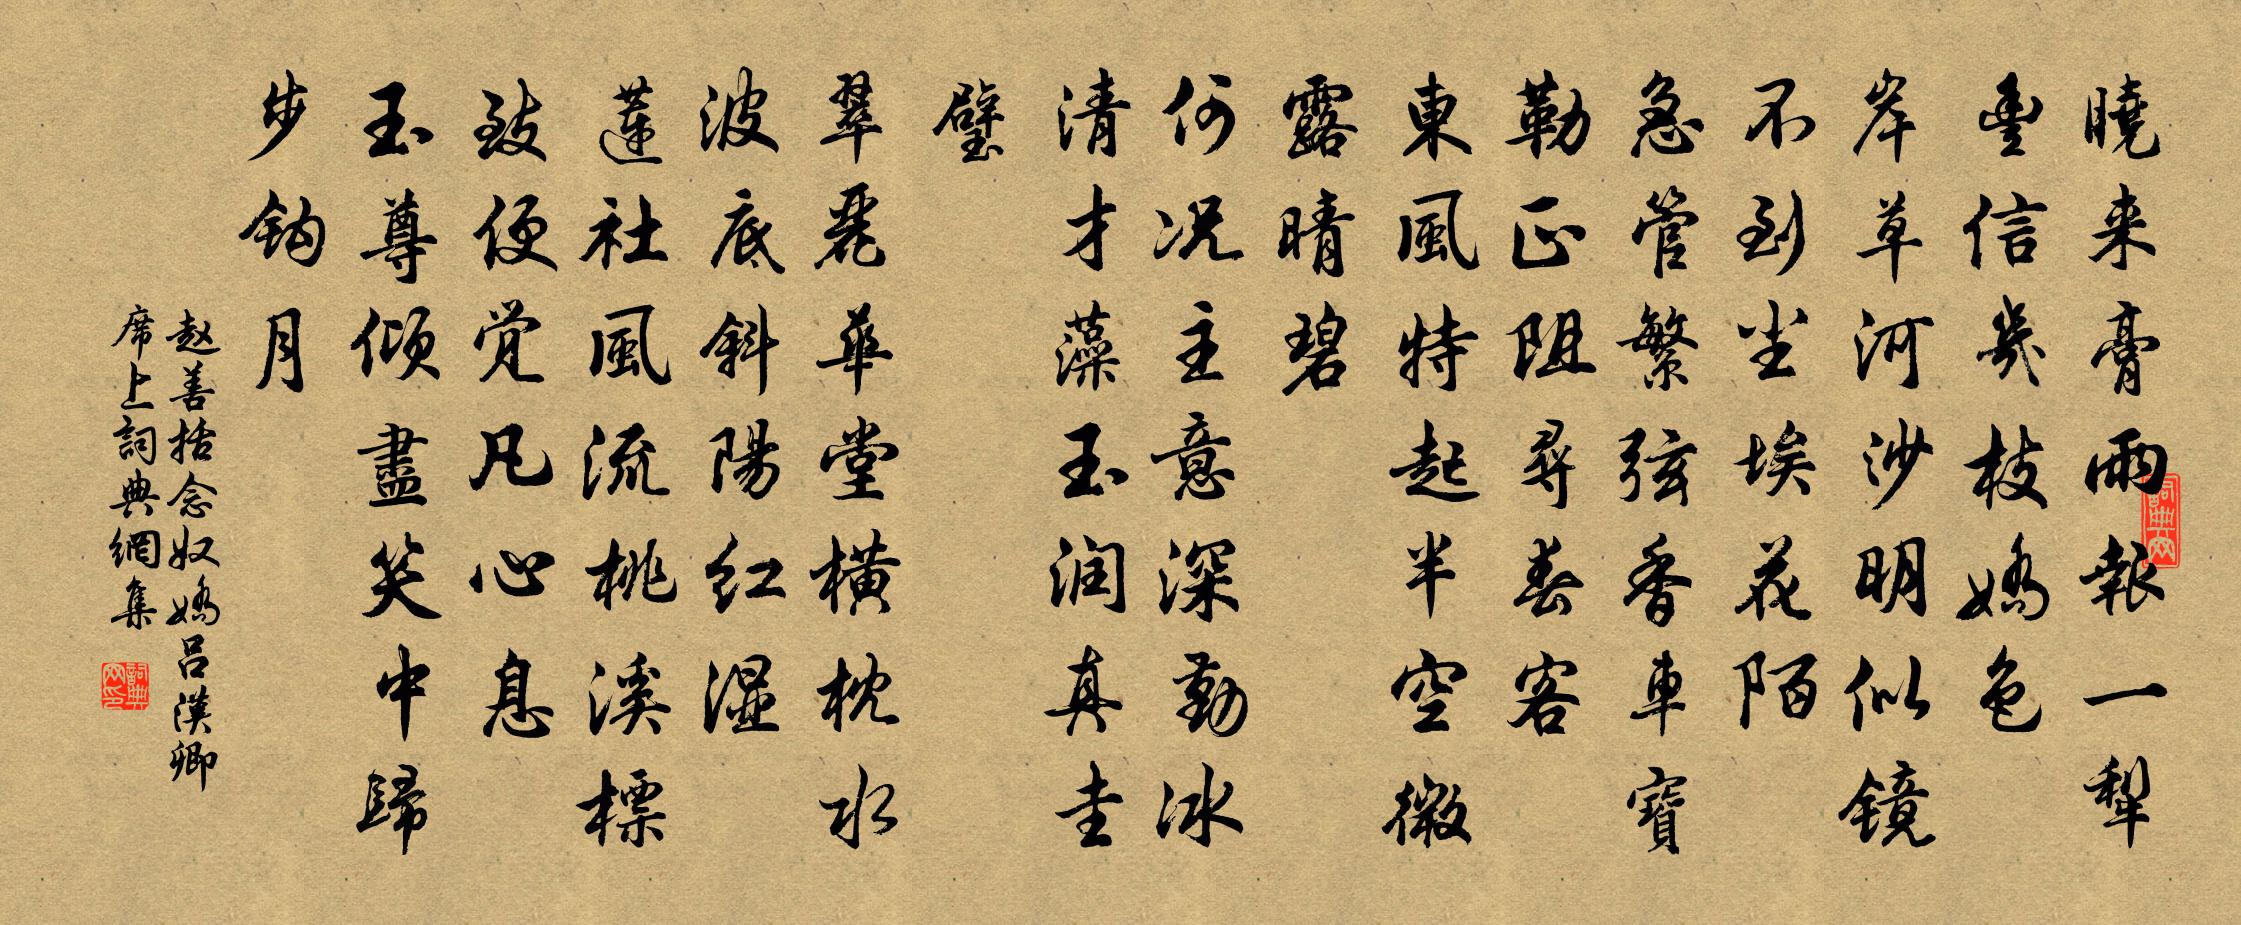 曉来膏雨報一犁
豊信幾枝嬌色
岸草河沙明似鏡
不到尘埃花陌
急管繁弦香車寶
勒正阻尋春客
東風特起半空微
露晴碧
何况主意深勤冰
清才藻玉润真圭
璧
翠麗華堂横枕水
波底斜陽红濕
蓮社風流桃溪標
致便覚凡心息
玉尊倾盡笑中歸
步鈎月
赵善括念奴嬌吕漢卿
席上詞典網集